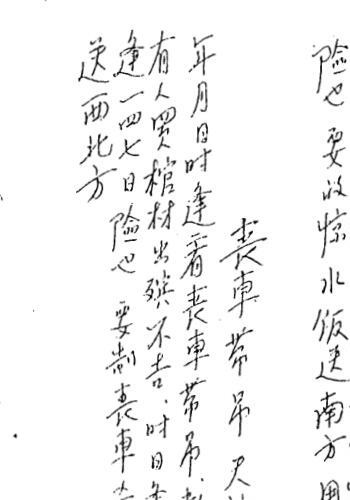 險也 要收惊水饭送南方用
喪車帶吊
年月日时逢着喪車帶吊
有人買棺材出殡不吉、时日
逢一四七日險也 要制喪車
送西北方